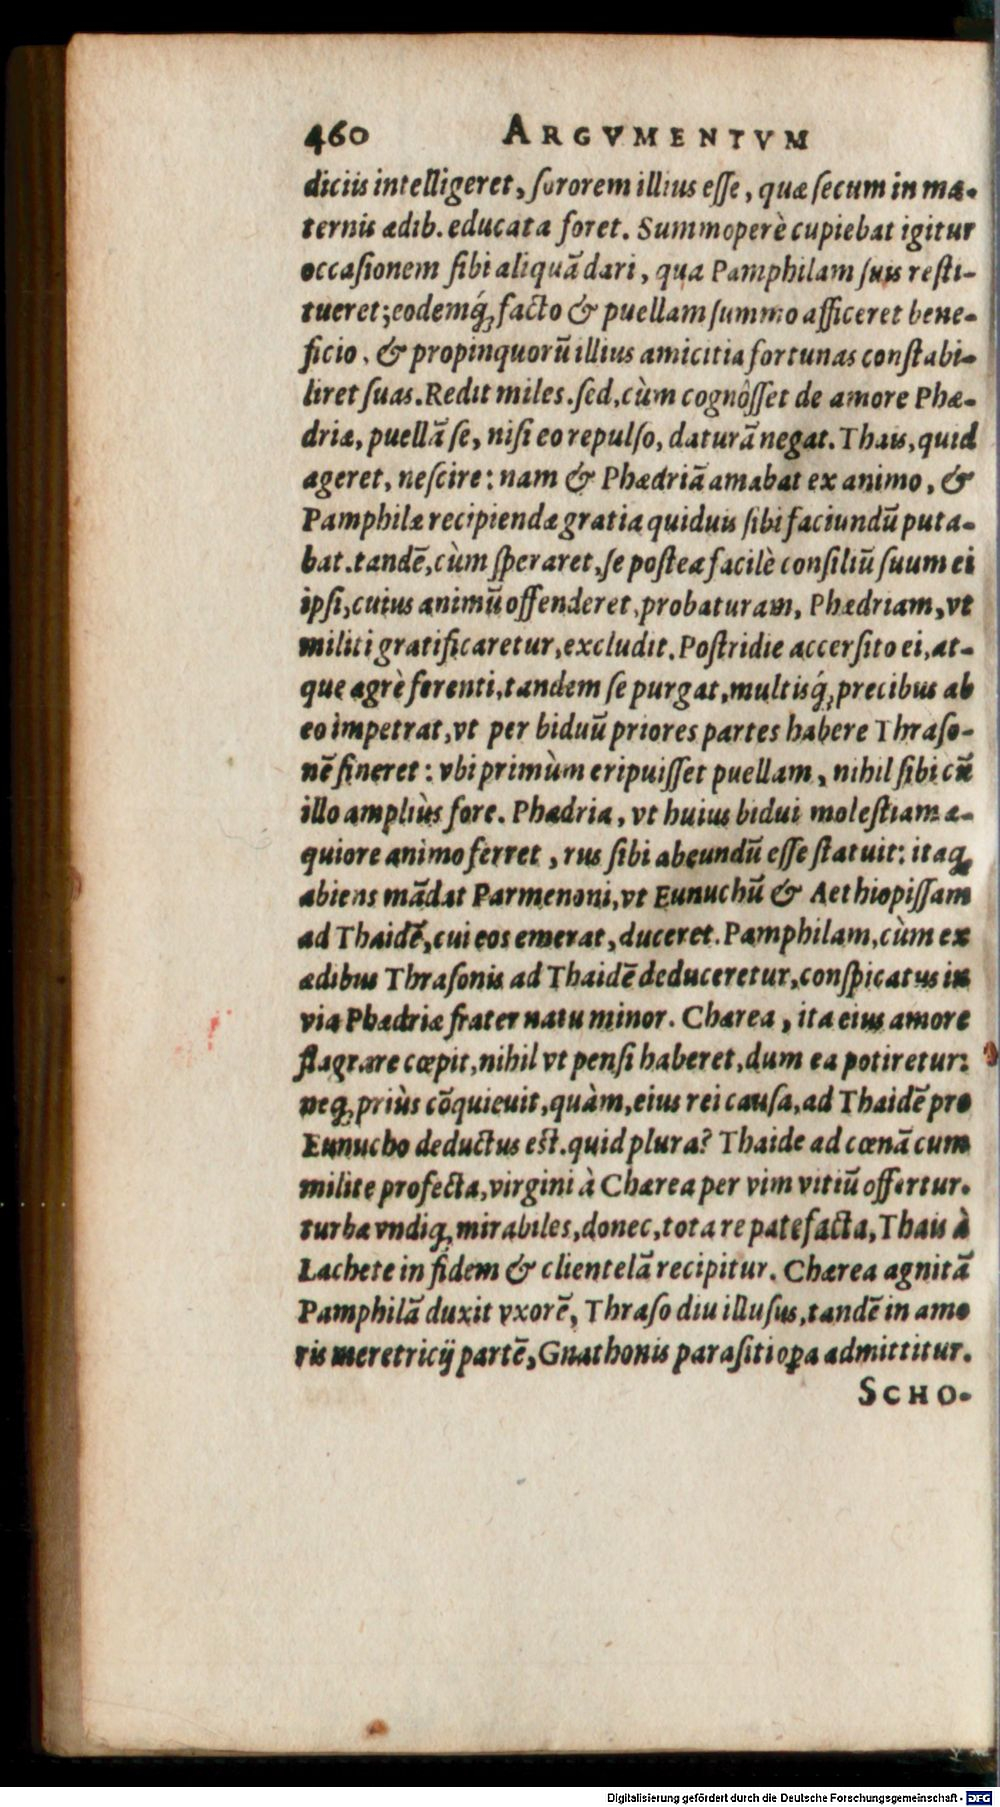 460 ARGVMENTVM
diciis intelligeret, sororem illius esse, quæ secum in ma-
ternis ædib. educata foret. Summoperè cupiebat igitur
occasionem sibi aliquā dari, qua Pamphilam suis resti-
tueret; eodemq́; facto & puellam summo afficeret bene-
ficio, & propinquorū illius amicitia fortunas constabi-
liret suas. Redit miles. sed, cùm cognôsset de amore Phæ-
driæ, puellā se, nisi eo repulso, daturā negat. Thais, quid
ageret, nescire: nam & Phædriā amabat ex animo, &
Pamphilæ recipiendæ gratia quiduis sibi faciundū puta-
bat. tandē, cùm speraret, se postea facilè consiliū suum ei
ipsi, cuius animū offenderet, probaturam, Phædriam, vt
militi gratificaretur, excludit. Postridie accersito ei, at-
que ægrè ferenti, tandem se purgat, multisq́; precibus ab
eo impetrat, vt per biduū priores partes habere Thraso-
nē sineret: vbi primùm eripuisset puellam, nihil sibi cū
illo ampliùs fore. Phædria, vt huius bidui molestiam æ-
quiore animo ferret, rus sibi abeundū esse statuit: itaq;
abiens mādat Parmenoni, vt Eunuchū & Aethiopissam
ad Thaidē, cui eos emerat, duceret. Pamphilam, cùm ex
ædibus Thrasonis ad Thaidē deduceretur, conspicatus in
via Phædriæ frater natu minor. Chærea, ita eius amore
flagrare cœpit, nihil vt pensi haberet, dum ea potiretur:
neq; priùs cōquieuit, quàm, eius rei causa, ad Thaidē pro
Eunucho deductus est. quid plura? Thaide ad cœnā cum
milite profecta, virgini à Chærea per vim vitiū offertur.
turbæ vndiq; mirabiles, donec, tota re patefacta, Thais à
Lachete in fidem & clientelā recipitur. Chærea agnitā
Pamphilā duxit vxorē, Thraso diu illusus, tandē in amo
ris meretricij partē, Gnathonis parasiti oꝑa admittitur.
SCHO-
Digitalisierung gefördert durch die Deutsche Forschungsgemeinschaft - DFG